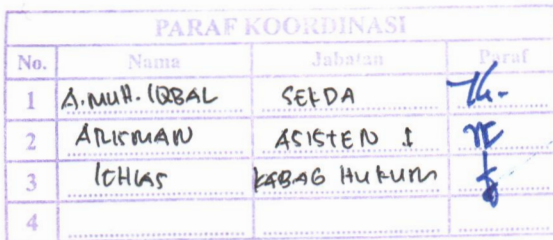 PARAF KOORDINASI
No. Nama Jabatan Paraf
1 A. MUH. IQBAL SEKDA
2 ARISMAN ASISTEN 1
3 ICHLAS KABAG HUKUM
4